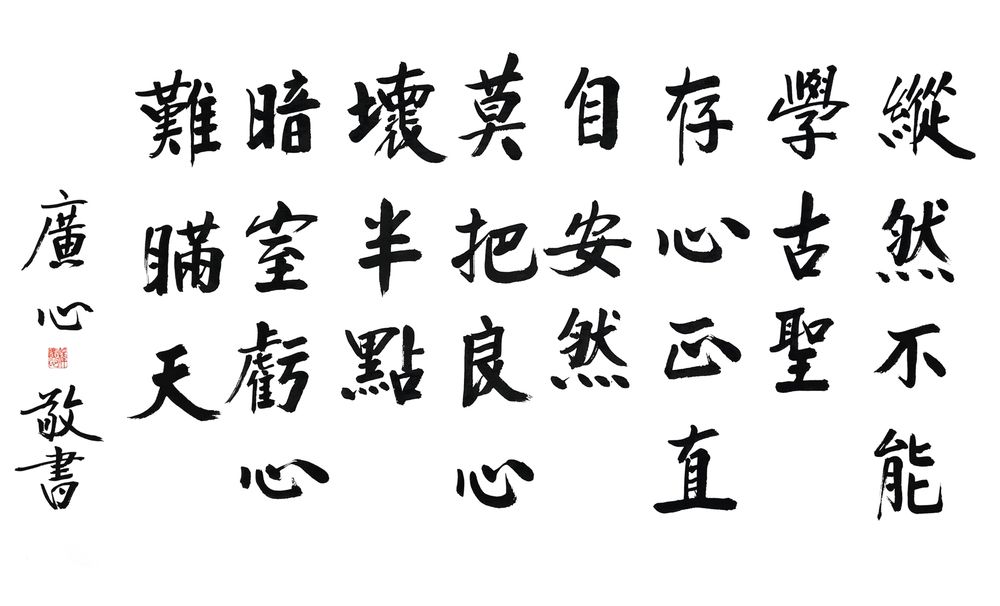 縱然不能
學古聖
存心正直
自安然
莫把良心
壞半點
暗室虧心
難瞞天
廣心敬書